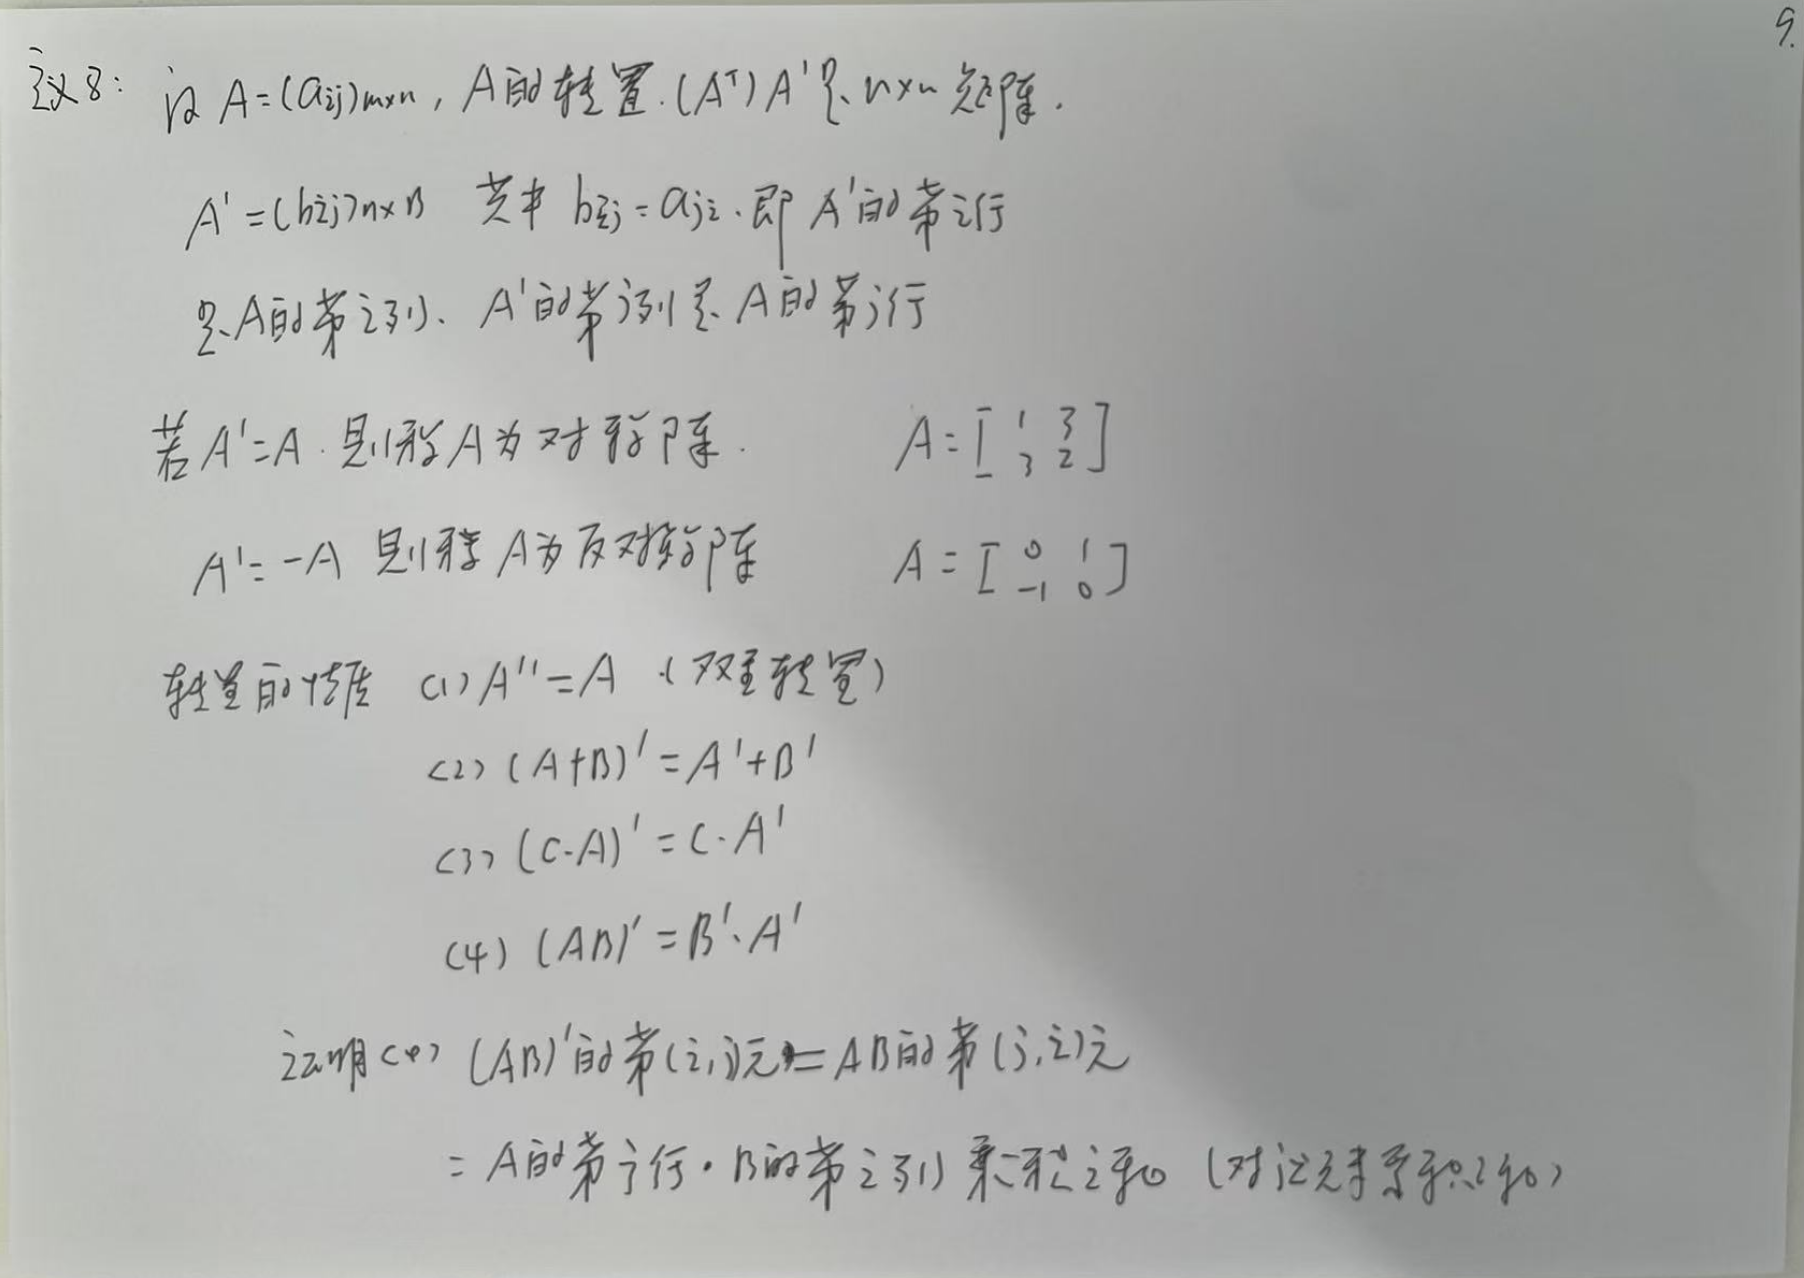 9.
定义8: 设 A=(aij)m×n, A的转置.(Aᵀ) A'是 n×n 矩阵.
A'=(bij)n×n 其中 bij=aji.即 A'的第i行
是A的第i列、A'的第j列是 A的第j行
若A'=A.则称A为对称阵. A=[1 3
3 2]
A'=-A 则称A为反对称阵 A=[0 1
-1 0]
转置的性质 (1) A''=A (双重转置)
(2) (A+B)'=A'+B'
(3) (C·A)'=C·A'
(4) (AB)'=B'·A'
证明(4) (AB)'的第(i,j)元=AB的第(j,i)元
=A的第j行·B的第i列 乘积之和 (对应元素乘积之和)